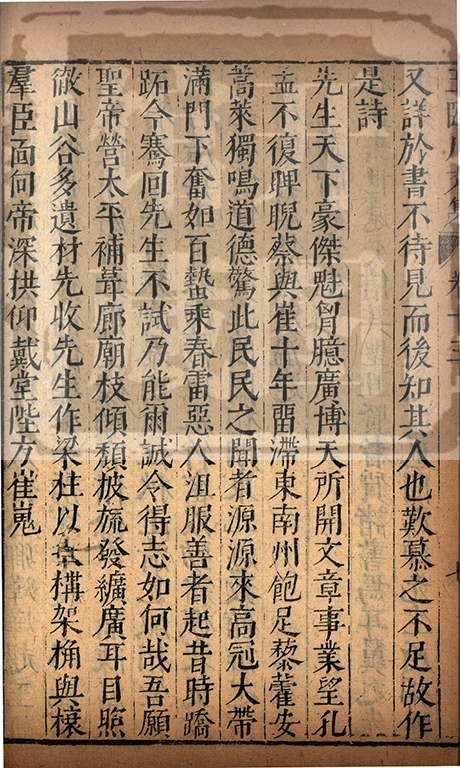 又詳於書不待見而後知其人也歎慕之不足故作
是詩
先生天下豪傑魁胷臆廣博天所開文章事業望孔
孟不復睥睨蔡與崔十年畱滯東南州飽足藜藿安
蒿萊獨鳴道德驚此民民之聞者源源來高冠大帶
滿門下奮如百蟄乘春雷惡人沮服善者起昔時蹻
跖今騫回先生不試乃能爾誠令得志如何哉吾願
聖帝營太平補葺廊廟枝傾頹披旒發纊廣耳目照
徹山谷多遺材先收先生作梁柱以次構架桷與榱
羣臣面向帝深拱仰戴堂陛方崔嵬